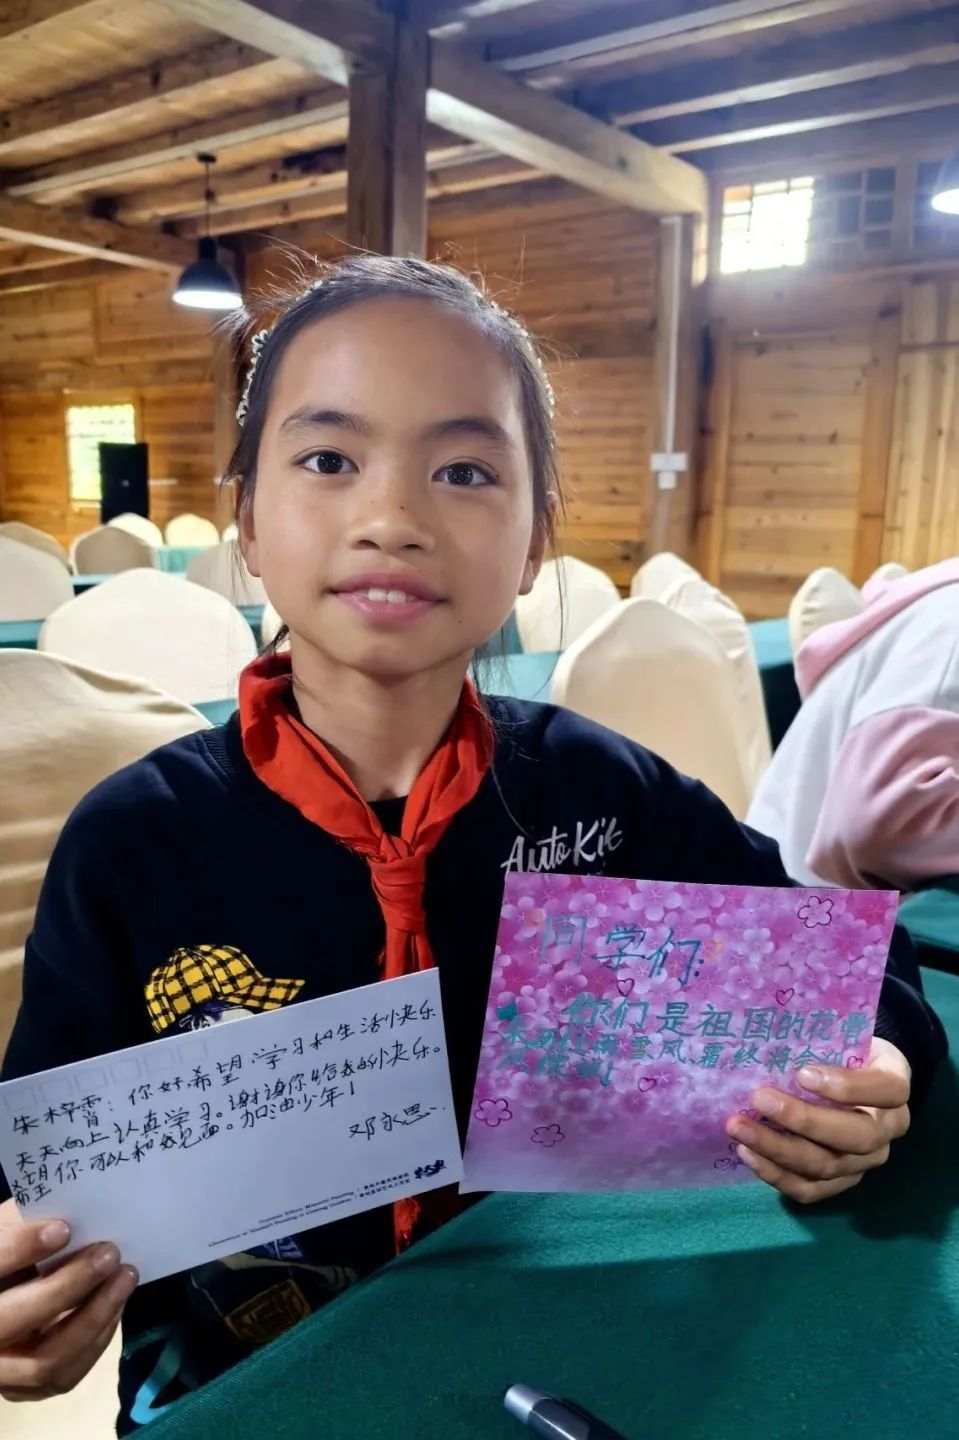 Auto Kik
朱梓霄：你好希望，学习和生活快乐
天天向上认真学习。谢谢你给我的快乐。
希望你可以和我见面。加油少年！
邓永思
同学们:
你们是祖国的花骨
雪风霜终将会